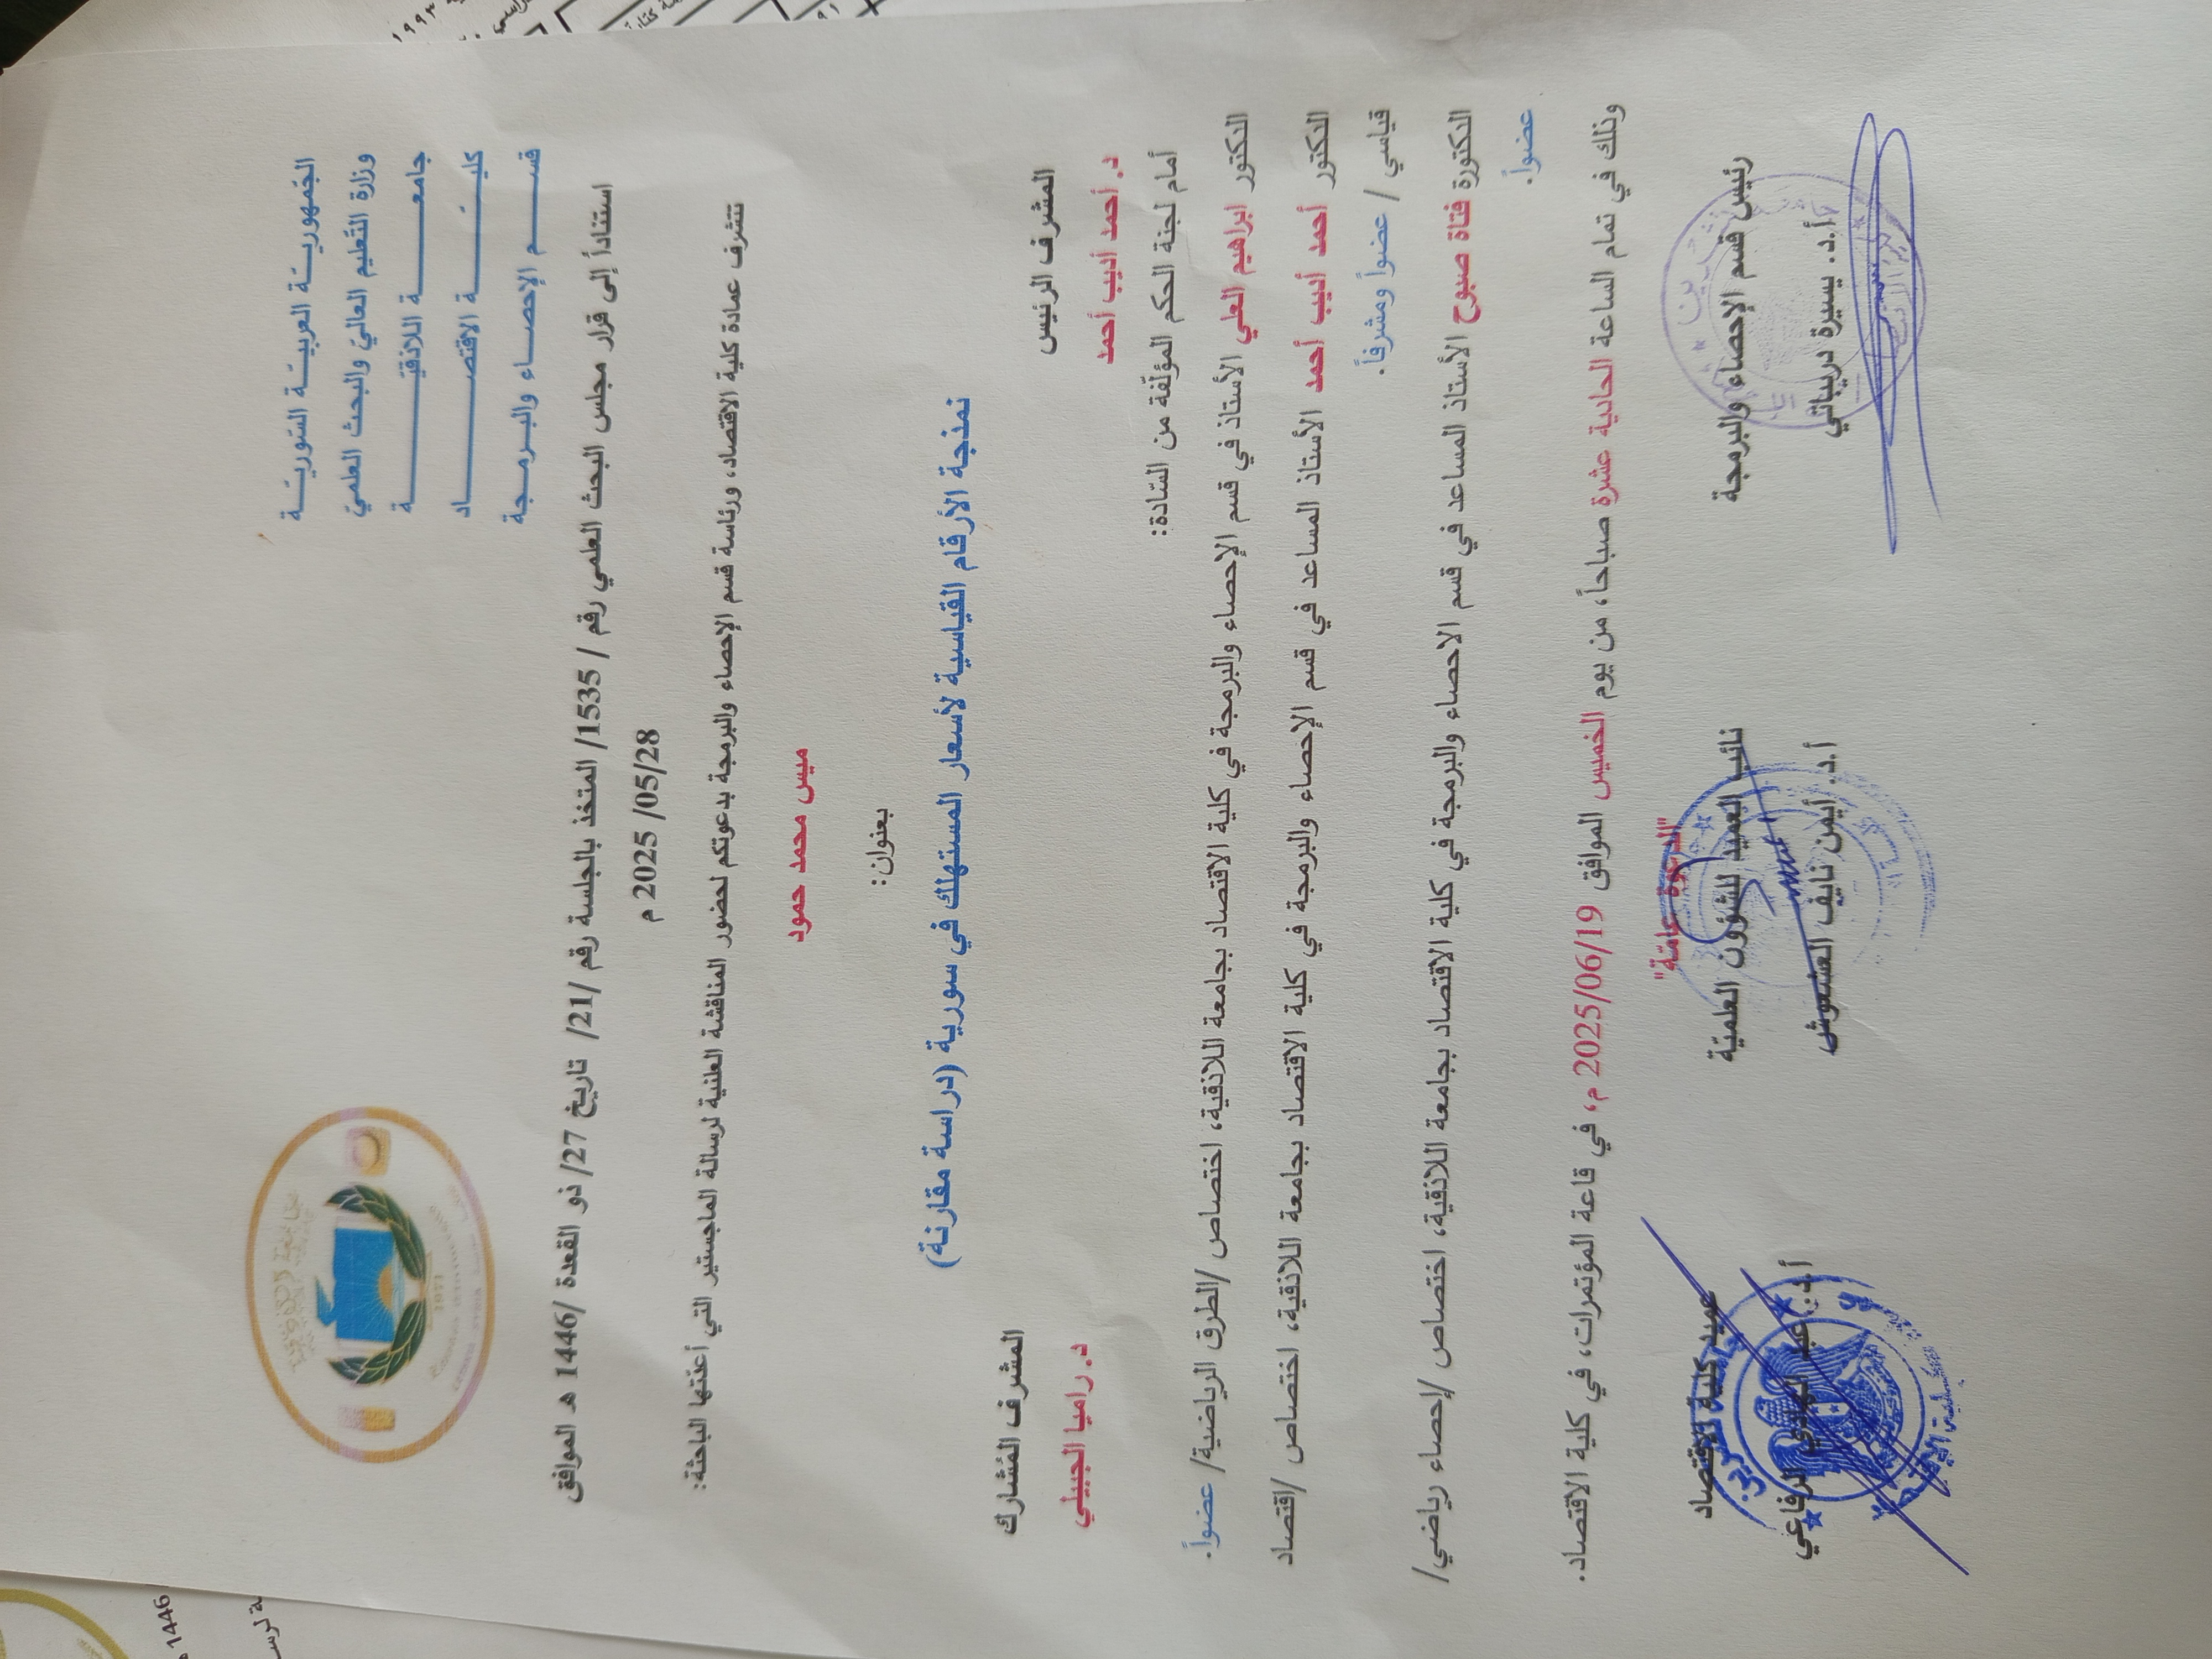 الجمهوريّة العربيّة السّوريّة
وزارة التّعليم العالي والبحث العلميّ
جامعة اللاذقيّة
كليّة الاقتصاد
قسم الإحصاء والبرمجة
استناداً إلى قرار مجلس البحث العلمي رقم / 1535/ المتخذ بالجلسة رقم /21/ تاريخ 27/ ذو القعدة /1446 هـ الموافق
28/05/ 2025 م
تتشرف عمادة كلية الاقتصاد، ورئاسة قسم الإحصاء والبرمجة بدعوتكم لحضور المناقشة العلنية لرسالة الماجستير التي أعدّتها الباحثة:
ميس محمد حمود
بعنوان:
نمذجة الأرقام القياسية لأسعار المستهلك في سورية (دراسة مقارنة)
المشرف الرئيس المشرف المُشارك
د. أحمد أديب أحمد د. راميا الجبيلي
أمام لجنة الحكم المؤلّفة من السّادة:
الدكتور ابراهيم العلي الأستاذ في قسم الإحصاء والبرمجة في كلية الاقتصاد بجامعة اللاذقية، اختصاص /الطرق الرياضية/ عضواً.
الدكتور أحمد أديب أحمد الأستاذ المساعد في قسم الإحصاء والبرمجة في كلية الاقتصاد بجامعة اللاذقية، اختصاص /اقتصاد
قياسي / عضواً ومشرفاً.
الدكتورة فتاة صبوح الأستاذ المساعد في قسم الاحصاء والبرمجة في كلية الاقتصاد بجامعة اللاذقية، اختصاص /إحصاء رياضي/
عضواً.
وذلك في تمام الساعة الحادية عشرة صباحاً، من يوم الخميس الموافق 2025/06/19 م، في قاعة المؤتمرات، في كلية الاقتصاد.
"الدعوة عامّة"
رئيس قسم الإحصاء والبرمجة نائب العميد للشؤون العلميّة عميد كلية الاقتصاد
أ.د. يسيرة دريباتي أ.د. أيمن نايف العشعوش أ.د. عبد الهادي الرفاعي